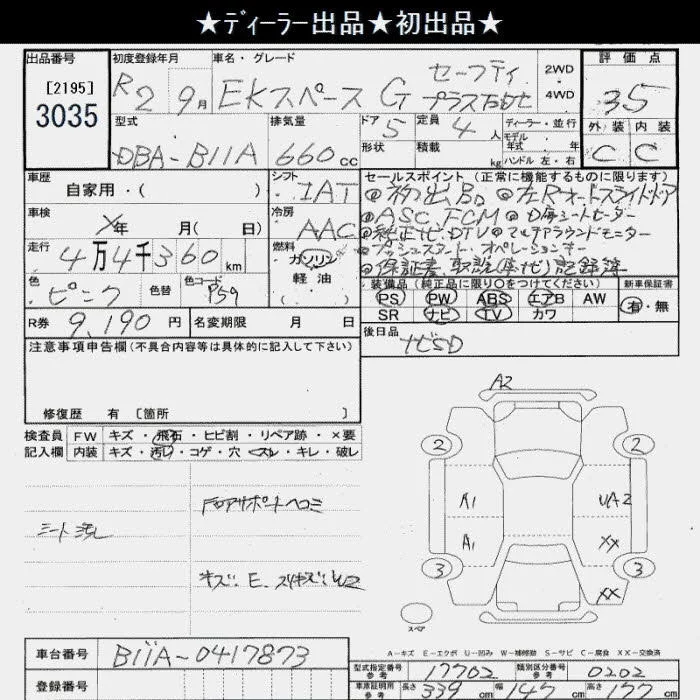 ★ディーラー出品★初出品★
出品番号
[2195]
3035
初度登録年月
R2 9月
車名・グレード
EKスペース G セーフティ
プラス
2WD
4WD
評価点
3.5
外装 内装
C C
型式
DBA-B11A
排気量
660cc
ドア
5
形状
定員
4人
積載
kg
ディーラー・並行
モデル
年式 年
ハンドル 左・右
車歴
自家用・( )
シフト
IAT
セールスポイント (正常に機能するものに限ります)
◎初出品 ◎左Rオートスライドドア
◎ASC, FCM ◎
◎純正ナビ・DTV ◎マルチアラウンドモニター
◎プッシュスタート・オペレーションキー
◎保証書 取説(車・ナビ) 記録簿
車検
年 月( 日)
冷房
AAC
走行
4万4千360km
燃料
ガソリン
軽油
( )
色
ピンク
色替
色コード
P59
R券 9,190円
名変期限 月 日
装備品(純正品に限り○をつけてください)
PS PW ABS エアB AW
SR ナビ TV カワ
新車保証書
有・無
後日品
ナビSD
注意事項申告欄(不具合内容等は具体的に記入して下さい)
修復歴 有 [箇所 ]
検査員
記入欄
FW キズ・飛石・ヒビ割・リペア跡・×要
内装 キズ・汚レ・コゲ・穴・スレ・キレ・破レ
シート汚レ
Fロアサポートヘコミ
キズ: E. スリキズ: W2
A2
2 2
A1 UA2
A1 XX
3 3
XX
スペア
A-キズ E-エクボ U-凹み W-補修跡 S-サビ C-腐食 XX-交換済
車台番号 B11A-0417873
登録番号
型式指定番号
参考
17702
類別区分番号
参考
0202
車庫証明用
参考
長さ 339cm 幅 147cm 高さ 177cm